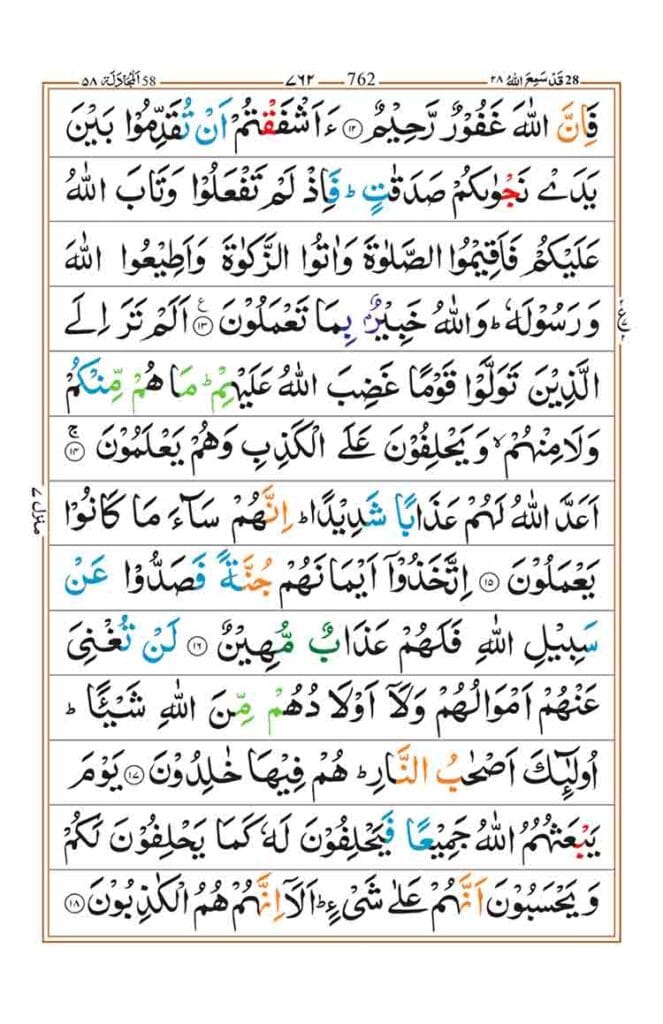 28 قَدْ سَمِعَ اللّٰهُ ٢٨ 762 ٧٦٢ 58 اَلْمُجَادَلَة ٥٨
فَاِنَّ اللّٰهَ غَفُوْرٌ رَّحِيْمٌ ۝۱۲ ءَاَشْفَقْتُمْ اَنْ تُقَدِّمُوْا بَيْنَ
يَدَيْ نَجْوٰىكُمْ صَدَقٰتٍ ؕ فَاِذْ لَمْ تَفْعَلُوْا وَتَابَ اللّٰهُ
عَلَيْكُمْ فَاَقِيْمُوا الصَّلٰوةَ وَاٰتُوا الزَّكٰوةَ وَاَطِيْعُوا اللّٰهَ
وَرَسُوْلَهٗ ؕ وَاللّٰهُ خَبِيْرٌۢ بِمَا تَعْمَلُوْنَ ۝۱۳ ع اَلَمْ تَرَ اِلَى
ع
الَّذِيْنَ تَوَلَّوْا قَوْمًا غَضِبَ اللّٰهُ عَلَيْهِمْ ؕ مَا هُمْ مِّنْكُمْ
وَلَا مِنْهُمْ ۙ وَيَحْلِفُوْنَ عَلَى الْكَذِبِ وَهُمْ يَعْلَمُوْنَ ۝۱۴ ج
اَعَدَّ اللّٰهُ لَهُمْ عَذَابًا شَدِيْدًا ؕ اِنَّهُمْ سَآءَ مَا كَانُوْا
منزل ٧
يَعْمَلُوْنَ ۝۱۵ اِتَّخَذُوْۤا اَيْمَانَهُمْ جُنَّةً فَصَدُّوْا عَنْ
سَبِيْلِ اللّٰهِ فَلَهُمْ عَذَابٌ مُّهِيْنٌ ۝۱۶ لَنْ تُغْنِيَ
عَنْهُمْ اَمْوَالُهُمْ وَلَاۤ اَوْلَادُهُمْ مِّنَ اللّٰهِ شَيْـًٔا ؕ
اُولٰٓئِكَ اَصْحٰبُ النَّارِ ؕ هُمْ فِيْهَا خٰلِدُوْنَ ۝۱۷ يَوْمَ
يَبْعَثُهُمُ اللّٰهُ جَمِيْعًا فَيَحْلِفُوْنَ لَهٗ كَمَا يَحْلِفُوْنَ لَكُمْ
وَيَحْسَبُوْنَ اَنَّهُمْ عَلٰى شَيْءٍ ؕ اَلَاۤ اِنَّهُمْ هُمُ الْكٰذِبُوْنَ ۝۱۸